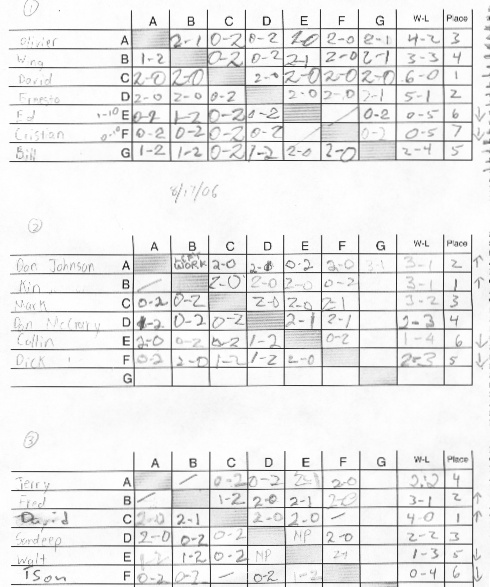 ①
A B C D E F G W-L Place
Olivier A 2-1 0-2 0-2 2-0 2-1 4-2 3
Wing B 1-2 0-2 0-2 2-1 2-0 2-1 3-3 4
David C 2-0 2-0 2-0 2-0 2-0 2-0 6-0 1
Ernesto D 2-0 2-0 0-2 2-0 2-0 2-1 5-1 2
Ed E 0-2 1-2 0-2 0-2 / 0-2 0-5 6 ↓
Cristian F 0-2 0-2 0-2 0-2 / 0-2 0-5 7 ↓
Bill G 1-2 1-2 0-2 1-2 2-0 2-0 2-4 5
8/17/06
②
A B C D E F G W-L Place
Don Johnson A WORK 2-0 0-2 2-0 3-1 2 ↑
Kin B / 2-0 2-0 2-0 0-2 3-1 1 ↑
Mark C 0-2 0-2 2-0 2-0 2-1 3-2 3
Don McCrary D 0-2 0-2 2-1 2-1 2-3 4
Collin E 2-0 0-2 0-2 1-2 0-2 1-4 6 ↓
Dick F 0-2 2-0 1-2 1-2 2-0 2-3 5 ↓
G
③
A B C D E F G W-L Place
Jerry A / 0-2 0-2 2-1 2-0 2-2 4
Fred B / 1-2 2-0 2-1 2-0 3-1 2 ↑
David C 2-0 2-1 2-0 2-0 / 4-0 1 ↑
Sandeep D 2-0 0-2 0-2 NP 2-0 2-2 3
Walt E 1-2 1-2 0-2 NP 2-1 1-3 5 ↓
Tson F 0-2 0-2 / 0-2 1-2 0-4 6 ↓